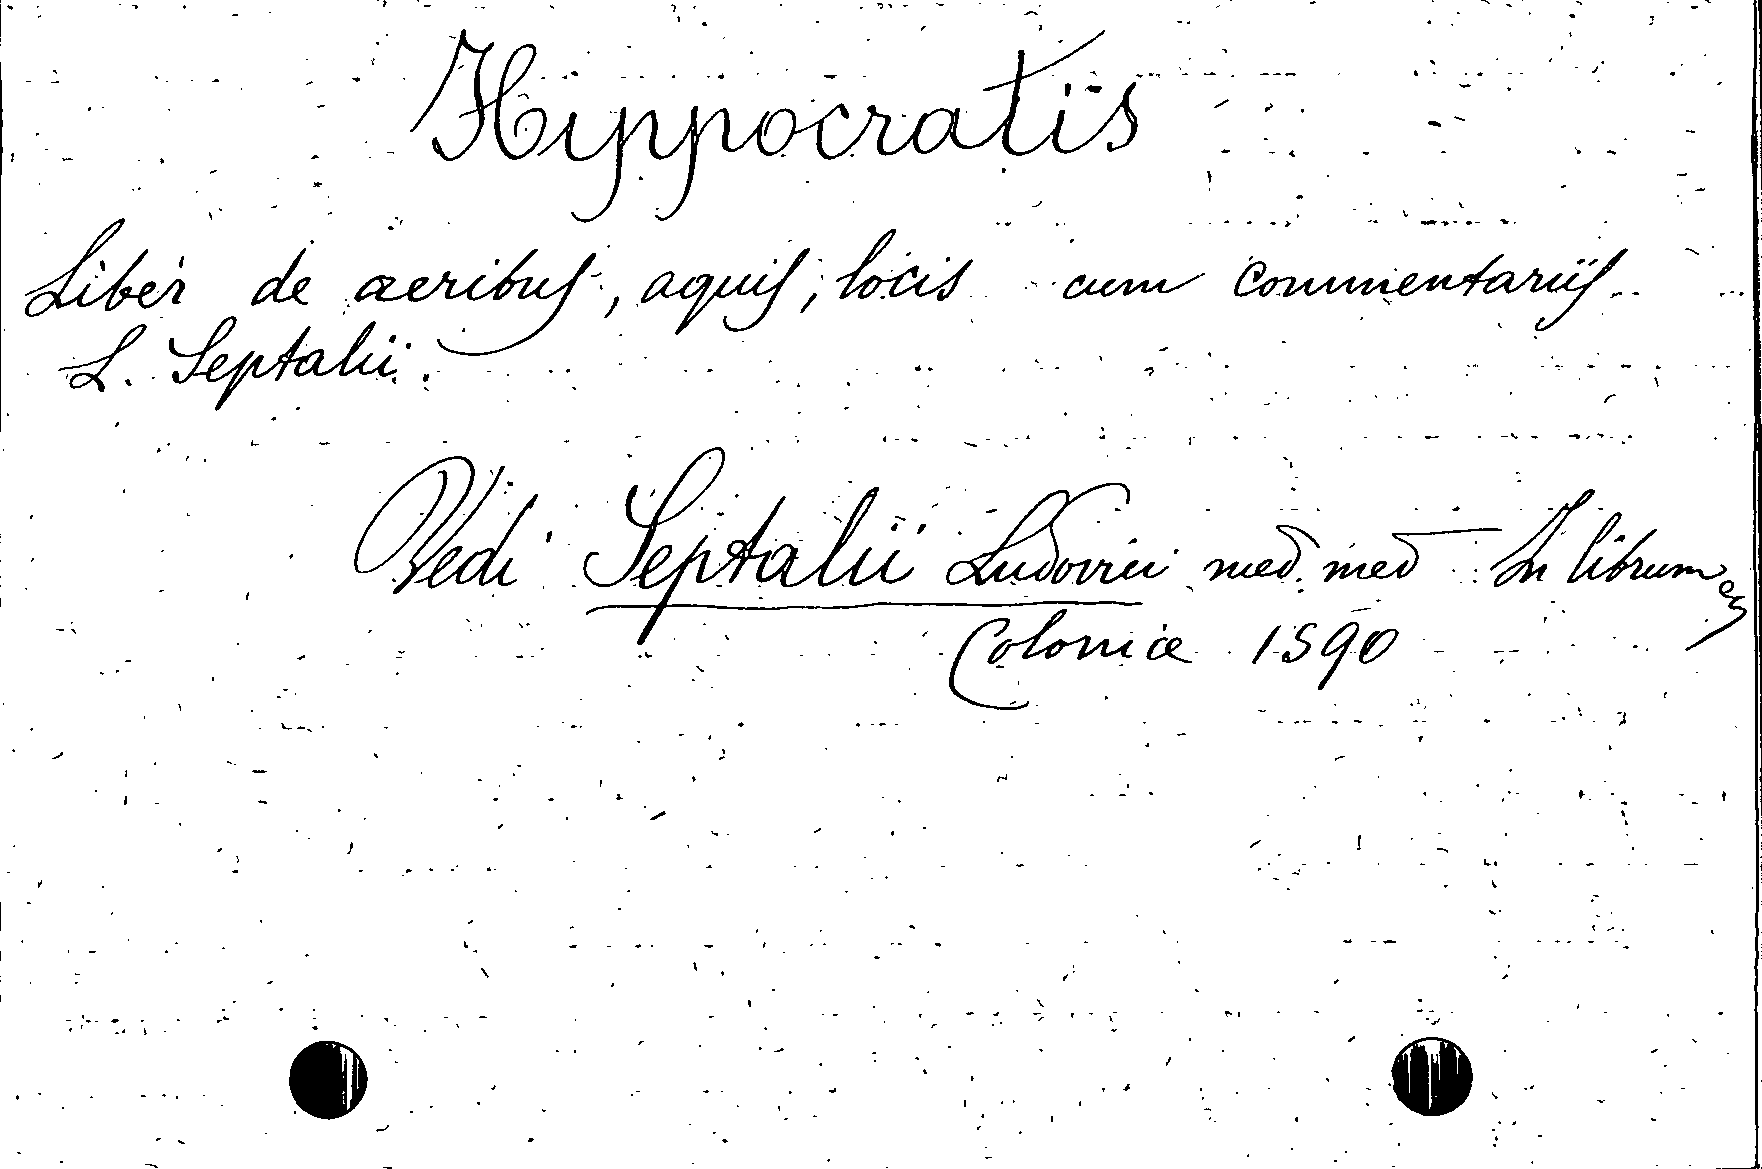 Hippocratis
Liber de aeribus, aquis, locis cum commentariis
L. Septalii.
Vedi Septalii Ludovici med. med In librum
Coloniae 1590